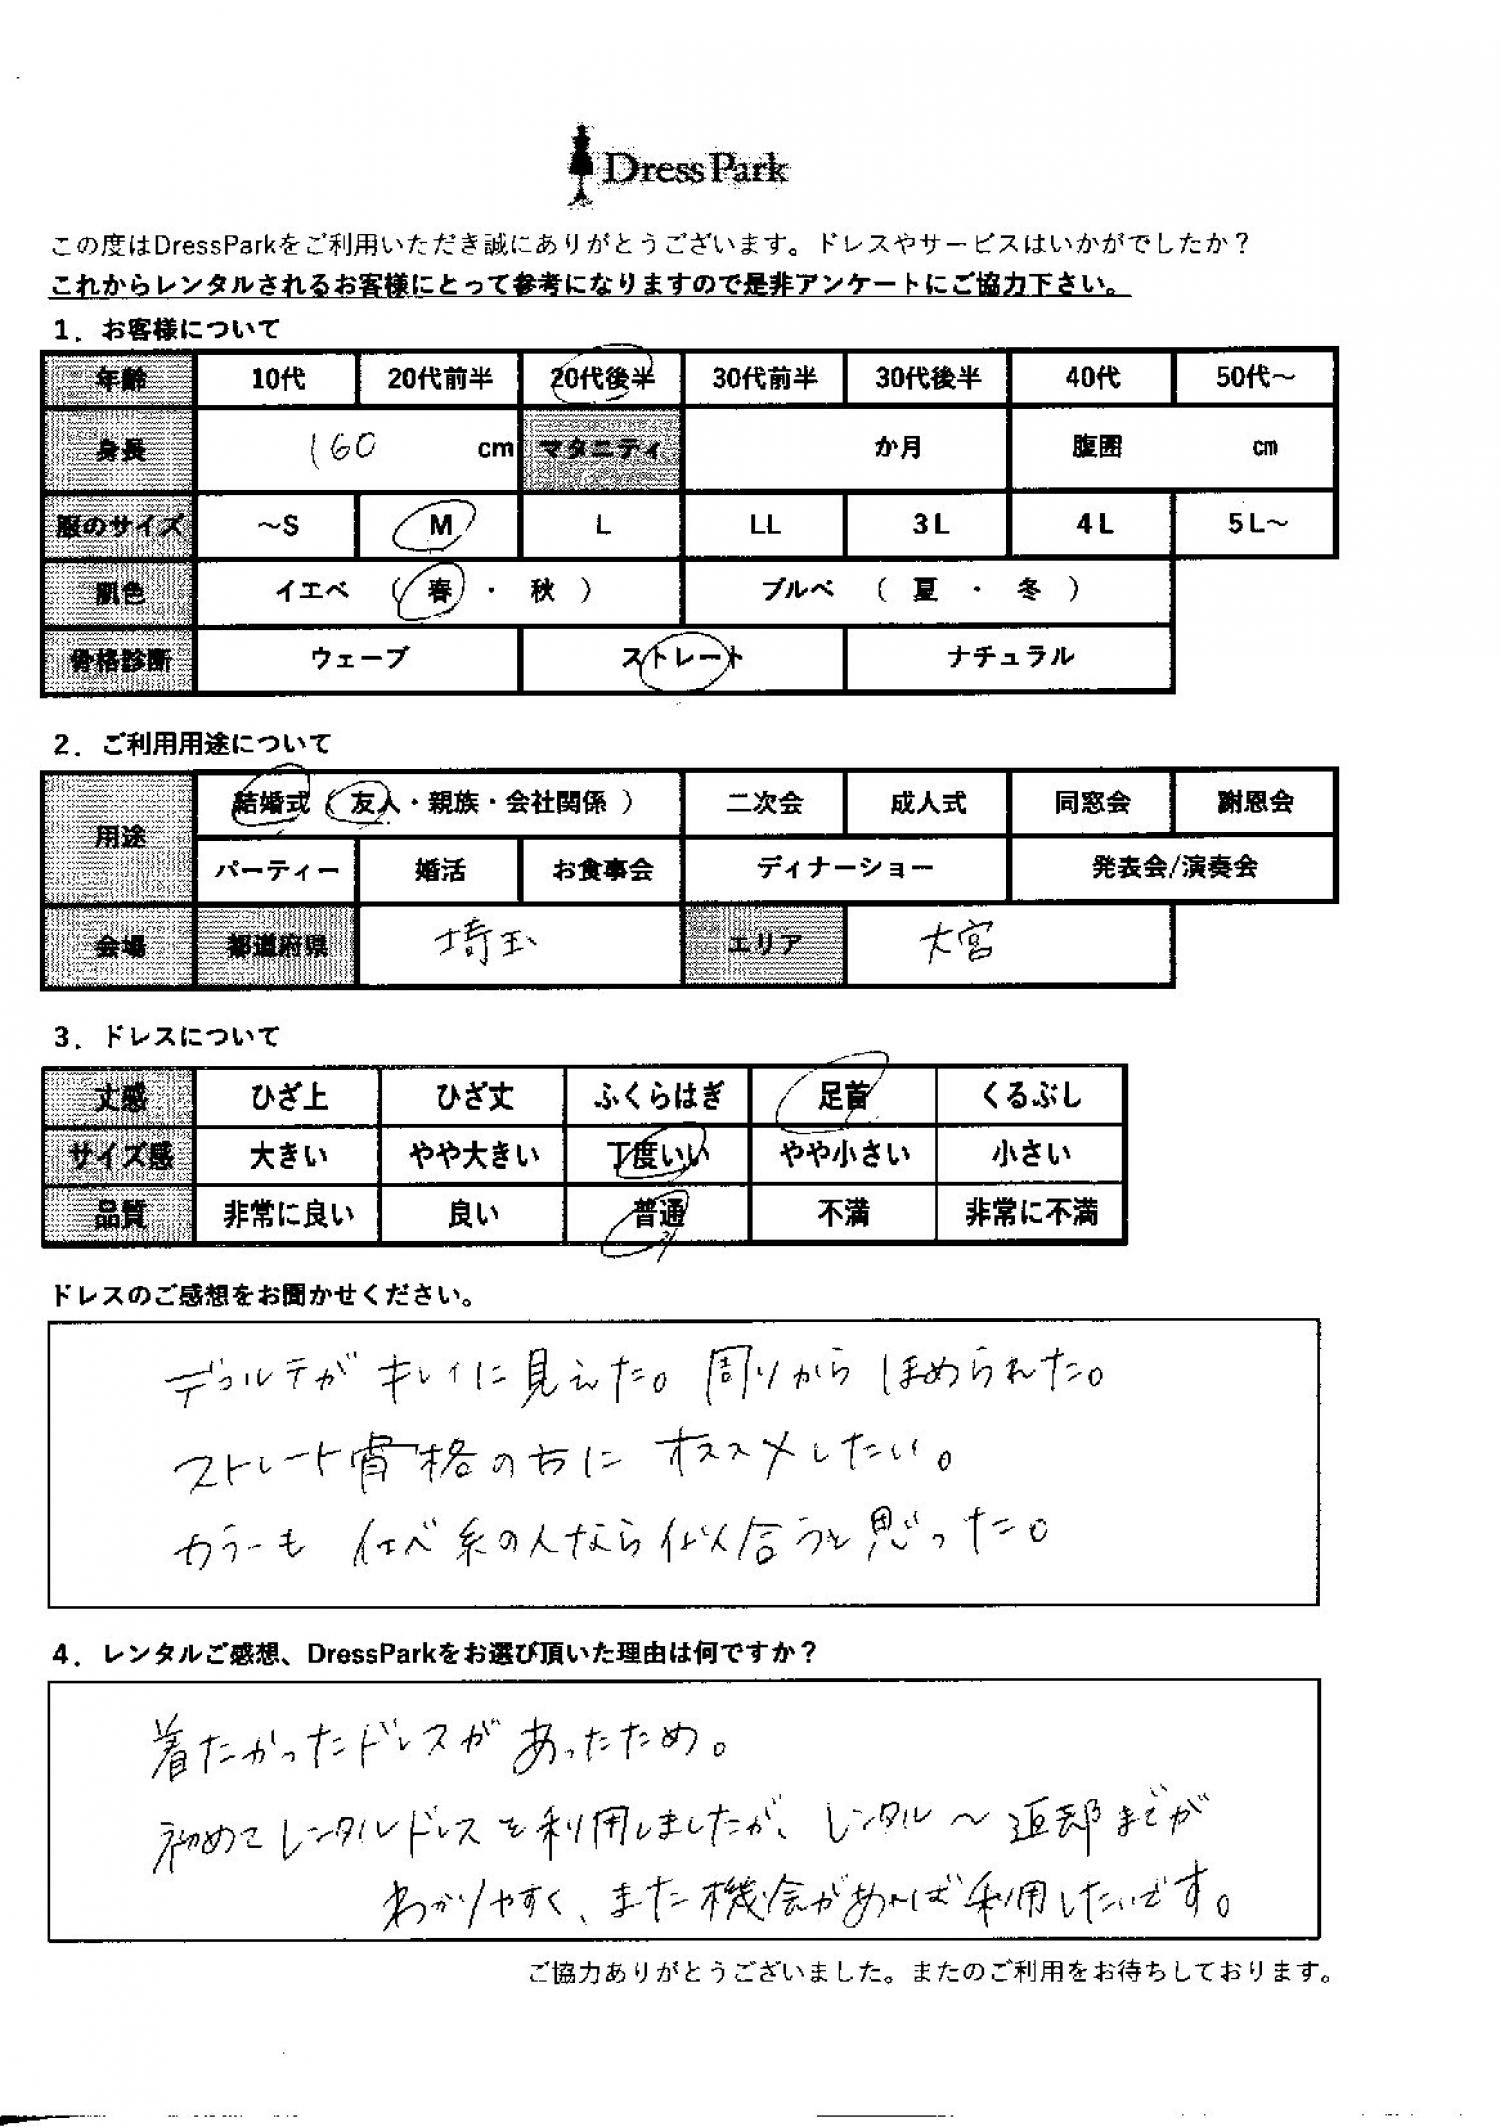 Dress Park
この度はDressParkをご利用いただき誠にありがとうございます。ドレスやサービスはいかがでしたか？
これからレンタルされるお客様にとって参考になりますので是非アンケートにご協力下さい。
1．お客様について
年齢 10代 20代前半 20代後半 30代前半 30代後半 40代 50代～
身長 160 cm マタニティ か月 腹囲 cm
服のサイズ ～S M L LL 3L 4L 5L～
肌色 イエベ （ 春 ・ 秋 ） ブルベ （ 夏 ・ 冬 ）
骨格診断 ウェーブ ストレート ナチュラル
2．ご利用用途について
用途 結婚式（ 友人・親族・会社関係 ） 二次会 成人式 同窓会 謝恩会
パーティー 婚活 お食事会 ディナーショー 発表会/演奏会
会場 都道府県 埼玉 エリア 大宮
3．ドレスについて
丈感 ひざ上 ひざ丈 ふくらはぎ 足首 くるぶし
サイズ感 大きい やや大きい 丁度いい やや小さい 小さい
品質 非常に良い 良い 普通 不満 非常に不満
ドレスのご感想をお聞かせください。
デコルテがキレイに見えた。周りからほめられた。
ストレート骨格の方にオススメしたい。
カラーもイエベ系の人なら似合うと思った。
4．レンタルご感想、DressParkをお選び頂いた理由は何ですか？
着たかったドレスがあったため。
初めてレンタルドレスを利用しましたが、レンタル～返却までが
わかりやすく、また機会があれば利用したいです。
ご協力ありがとうございました。またのご利用をお待ちしております。